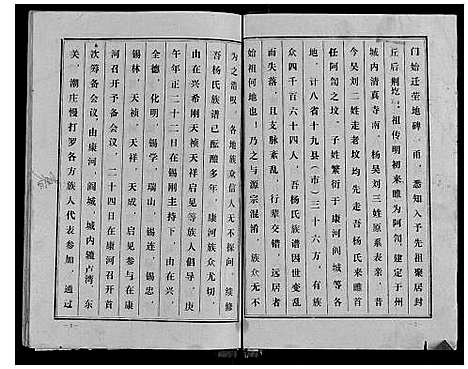 门始迁茔地碑一甬，悉知入予先祖聚居封
丘后荆圪：祖传明初来睢为阿訇，建定于州
城内清真寺南，杨吴刘三姓原系表亲，昔
今吴刘二姓走老坟均先走吾杨氏来睢首
任阿訇之坟。子姓繁衍于康河阎城等各
地，计八省十九县（市）三十六方，有族
众四千百六十四人，吾杨氏族谱因世变乱
而失落，且支脉紊乱，行辈交错，远居者
始祖何地也！乃之与源宗混淆，族众无不
为之浩叹，各地族众信人无不探问，续修
吾杨氏族谱已酝酿多年，康河族众尤切，
由在兴希刚天祯天祥启见等族人倡导，庚
午年正二十二日在锡刚主持下，由在兴，
全德，化明，锡学，瑞山，锡连，锡忠
锡林，天祯，天祥，天成，启见参与在康
河召开予备会议，二十四日在康河召开首
次筹备会议，由康河，阎城，城内辘卢湾，东
关，潮庄慢打罗各方族人代表参加，通过